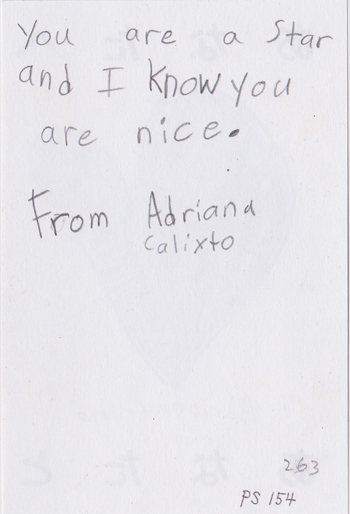 You are a Star
and I know you
are nice.
From Adriana
Calixto
263
PS 154